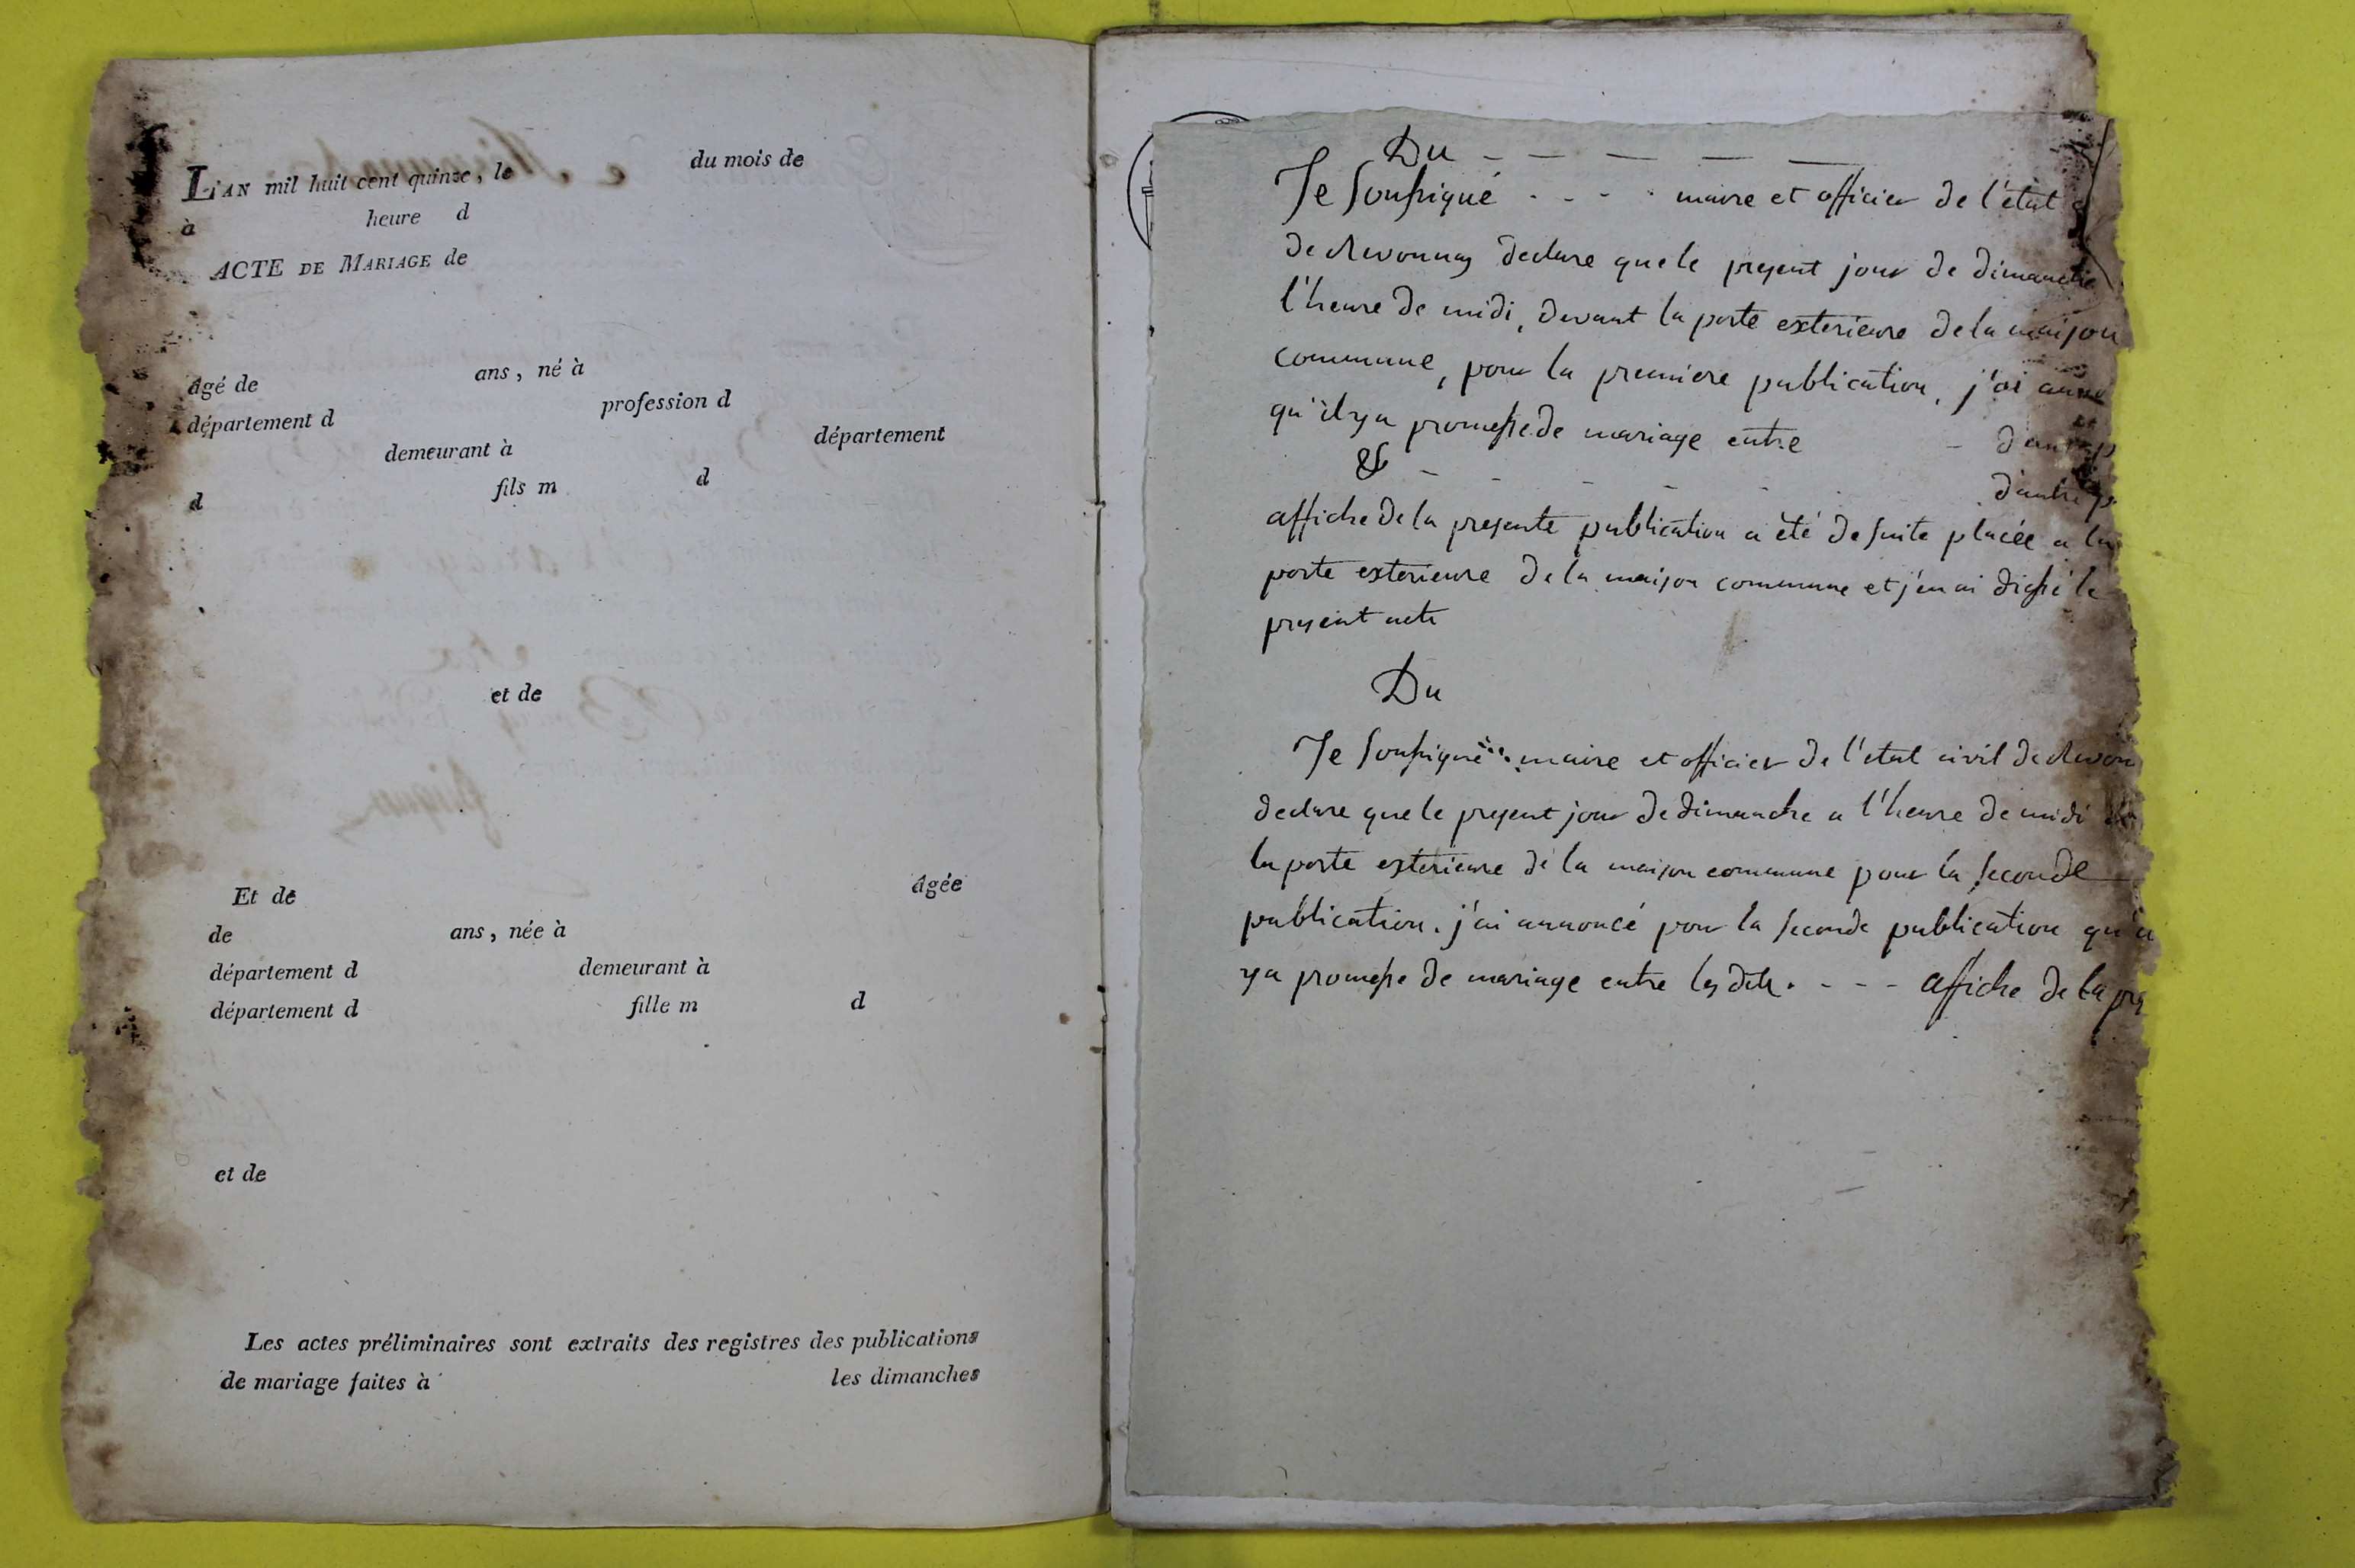 L'AN mil huit cent quinze, le du mois de
à heure d
ACTE DE MARIAGE de
âgé de ans, né à
département d profession d
demeurant à département
d fils m d
et de
Et de âgée
de ans, née à
département d demeurant à
département d fille m d
et de
Les actes préliminaires sont extraits des registres des publications
de mariage faites à les dimanches
Du - - - - -
Je soussigné - - - maire et officier de l'état
de Revonnas declare que le present jour de dimanche
l'heure de midi, devant la porte exterieure de la maison
commune, pour la premiere publication, j'ai
qu'il y a promesse de mariage entre -
& - - - -
affiche de la presente publication a été de suite placée a la
porte exterieure de la maison commune et j'en ai dressé le
present acte
Du
Je soussigné maire et officier de l'etat civil de Revon
declare que le present jour de dimanche a l'heure de midi
la porte exterieure de la maison commune pour la seconde
publication. j'ai annoncé pour la seconde publication qu'il
y a promesse de mariage entre les dits. - - - affiche de la pres